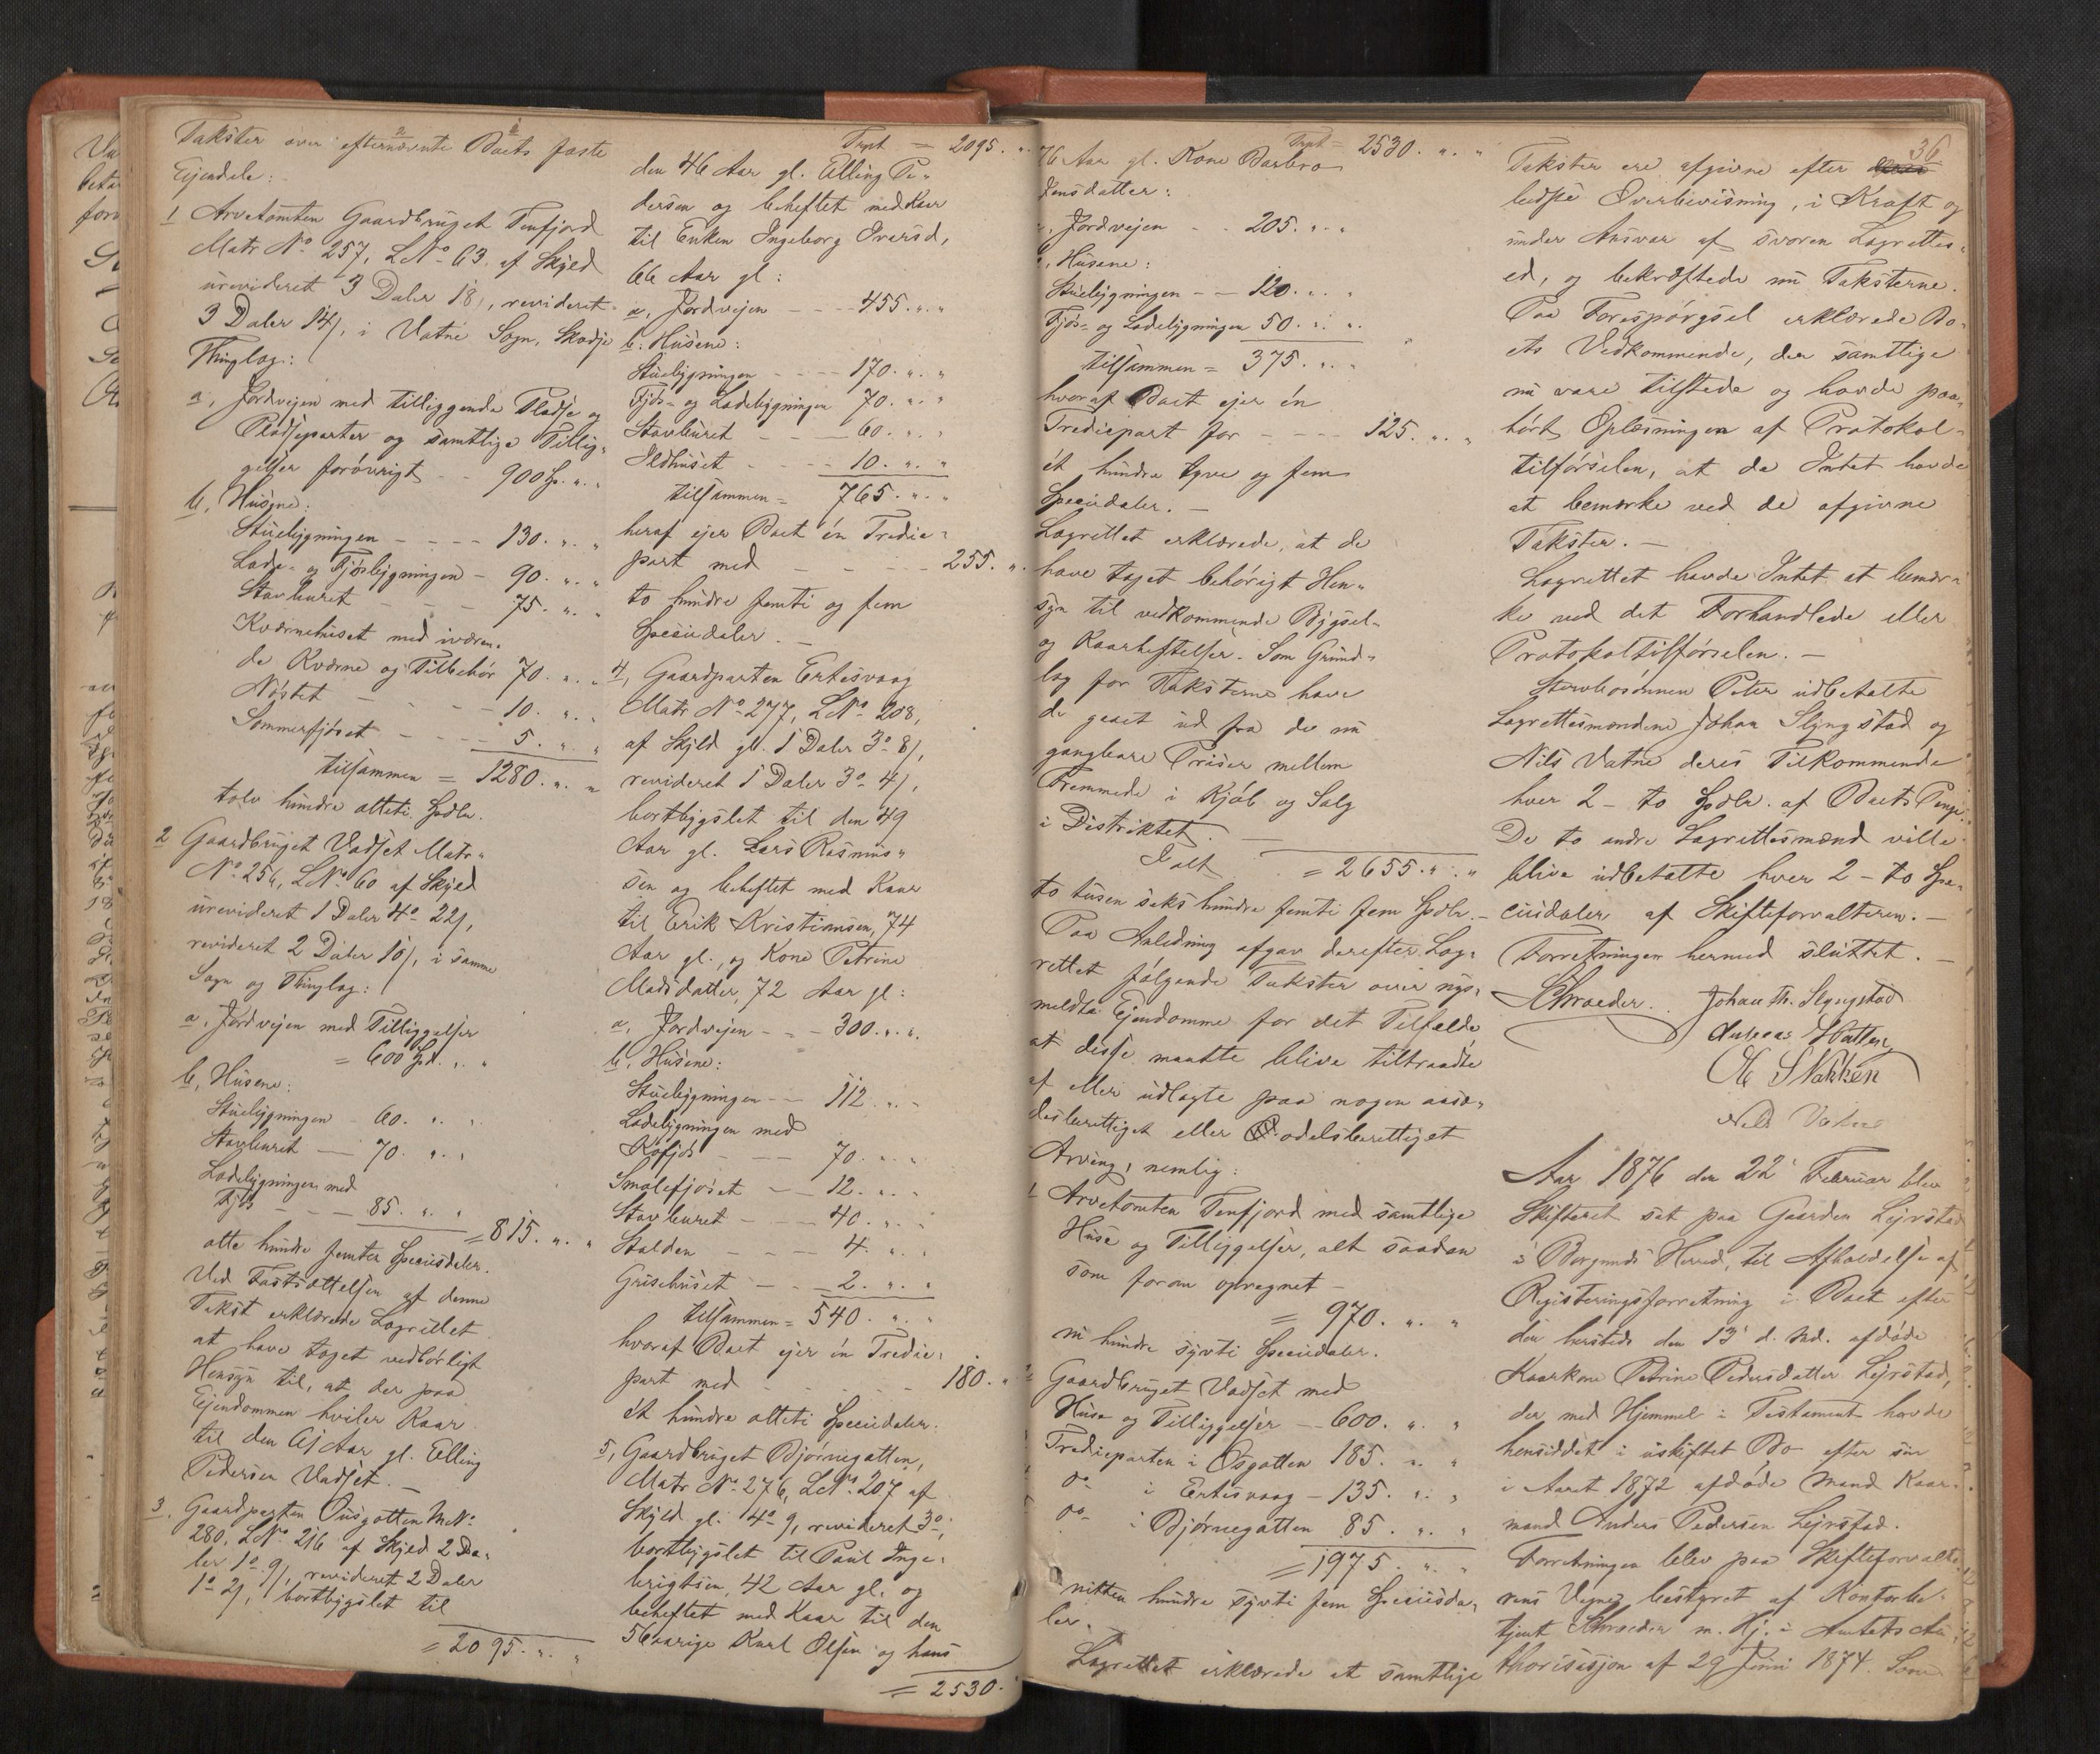 Takster over efternævnte Boets faste
Ejendele:
1 Arvetomten Gaardbruget Tenfjord
Matr No 257, LNo 63 af Skyld
urevideret 3 Daler 18 ß, revideret
3 Daler 14 ß, i Vatne Sogn, Skodje
Thinglag:
a, Jordvejen med tilliggende Pladse og
Pladseparter og samtlige Tillig-
gelser forøvrigt - - 900 Sp. " "
b, Husene:
Stuebygningen - - - - 130. " "
Lade- og Fjøsbygningen - 90. " "
Stavburet - - - 75. " "
Kværnehuset med iværen-
de Kværne og Tilbehør 70. " "
Nøstet - - - - 10. " "
Sommerfjøset - - - - 5. " "
tilsammen = 1280. " "
tolv hundre otteti Spdlr.
2 Gaardbruget Vadset Matr-
No 256, LNo 60 af Skyld
urevideret 1 Daler 4 o 22 ß,
revideret 2 Daler 16 ß, i samme
Sogn og Thinglag:
a, Jordvejen med Tilliggelser
= 600 Spd. " "
b, Husene:
Stuebygningen - 60. " "
Stavburet - 70. " "
Ladebygningen med
Fjøs - - - 85. " "
= 815. " "
otte hundre femten Speciedaler.
Ved Fastsættelsen af denne
Takst erklærede Lagrettet
at have taget vedbørligt
Hensyn til, at der paa
Ejendommen hviler Kaar
til den 61 Aar gl. Elling
Pedersen Vadset. -
3, Gaardparten Ousgotten MNo
280, LNo 216 af Skyld 2 Da-
ler 1 o 9 ß, revideret 2 Daler
1 o 2 ß, bortbygslet til
= 2095. " "
Trpt = 2095. "
den 46 Aar gl. Elling Pe-
dersen og beheftet med Kaar
til Enken Ingeborg Iversd,
66 Aar gl:
a, Jordvejen - - - - 455. " "
b, Husene:
Stuebygningen - - - - 170. " "
Fjøs- og Ladebygningen 70. " "
Stavburet - - - 60. " "
Ildhuset - - - 10. " "
tilsammen = 765. " "
heraf ejer Boet én Tredie-
part med - - - - 255. "
to hundre femti og fem
Speciedaler. -
4, Gaardparten Ertesvaag
Matr No 277, LNo 208,
af Skyld gl. 1 Daler 3 o 8 ß,
revideret 1 Daler 3 o 4 ß,
bortbygslet til den 49
Aar gl. Lars Rasmus-
sen og beheftet med Kaar
til Erik Kristiansen, 74
Aar gl., og Kone Petrine
Madsdatter, 72 Aar gl:
a, Jordvejen - - - 300. " "
b, Husene:
Stuebygningen - - 112. " "
Ladebygningen med
Kofjøs - - - 70. " "
Smalefjøset - - 12. " "
Stavburet - - - 40. " "
Stalden - - - 4. " "
Grisehuset - - 2. " "
tilsammen = 540. " "
hvoraf Boet ejer én Tredie-
part med - - - - 180. "
ét hundre otteti Speciedaler.
5, Gaardbruget Bjørnegotten,
Matr No 276, LNo 207 af
Skyld gl. 4 o 9, revideret 3 o,
bortbygslet til Paul Inge-
brigtsen, 42 Aar gl. og
beheftet med Kaar til den
56 aarige Karl Olsen og hans
= 2530.
Trpt = 2530. " "
76 Aar gl. Kone Barbro
Jensdatter:
a, Jordvejen - - 205. " "
b, Husene:
Stuebygningen - - 120. " "
Fjøs- og Ladebygningen 50. " "
tilsammen = 375. " "
hvoraf Boet ejer én
Trediepart for - - - 125. " "
ét hundre tyve og fem
Speciedaler. -
Lagrettet erklærede, at de
have taget behørigt Hen-
syn til vedkommende Bygsel-
og Kaarheftelser. Som Grund-
lag for Taksterne have
de gaaet ud fra de nu
gangbare Priser mellem
Fremmede i Kjøb og Salg
i Distriktet. -
Ialt = 2655. " "
to tusen seks hundre femti fem Spdlr. -
Paa Anledning afgav derefter Lag-
rettet følgende Takster over nys-
meldte Ejendomme for det Tilfælde,
at disse maatte blive tiltraadte
af eller udlagte paa nogen aasæ-
desberettiget eller odelsberettiget
Arving, nemlig:
1 Arvetomten Tenfjord med samtlige
Huse og Tilliggelser, alt saadan
som foran opregnet -
= 970. " "
ni hundre sytti Speciedaler.
2 Gaardbruget Vadset med
Huse og Tilliggelser - 600. " "
Tredieparten i Osgotten 185. " "
do i Ertesvaag - 135. " "
do i Bjørnegotten 85. " "
= 1975. " "
nitten hundre sytti fem Speciesda-
ler. -
Lagrettet erklærede at samtlige
36
Takster ere afgivne efter
bedste Overbevisning, i Kraft og
under Ansvar af svoren Lagrettes-
ed, og bekræftede nu Taksterne.
Paa Forespørgsel erklærede Bo-
ets Vedkommende, der samtlige
nu vare tilstede og havde paa-
hørt Oplæsningen af Protokol-
tilførselen, at de Intet havde
at bemærke ved de afgivne
Takster. -
Lagrettet havde Intet at bemær-
ke ved det Forhandlede eller
Protokoltilførselen. -
Stervbosønnen Peter udbetalte
Lagrettesmændene Johan Slyngstad og
Nils Vatne deres Tilkommende
hver 2 - to Spdlr. af Boets Penge.
De to andre Lagrettesmænd ville
blive udbetalte hver 2 - to Spe-
ciedaler af Skifteforvalteren. -
Forretningen hermed sluttet. -
Schroeder. Johan Th. Slyngstad
Andreas Hatlen
Ole S Nakken
Nils Vatne
Aar 1876 den 22' Februar blev
Skifteret sat paa Gaarden Lejrstad
i Borgunds Herred, til Afholdelse af
Registeringsforretning i Boet efter
den hersteds den 13' d. Md. afdøde
Kaarkone Petrine Pedersdatter Lejrstad,
der med Hjemmel i Testament havde
hensiddet i uskiftet Bo efter sin
i Aaret 1872 afdøde Mand Kaar-
mand Anders Pedersen Lejrstad.
Forretningen blev paa Skifteforvalte-
rens Vegne bestyret af Kontorbe-
tjent Schroeder m. Hj. i Amtets Au-
thorisasjon af 29 Juni 1874. Som